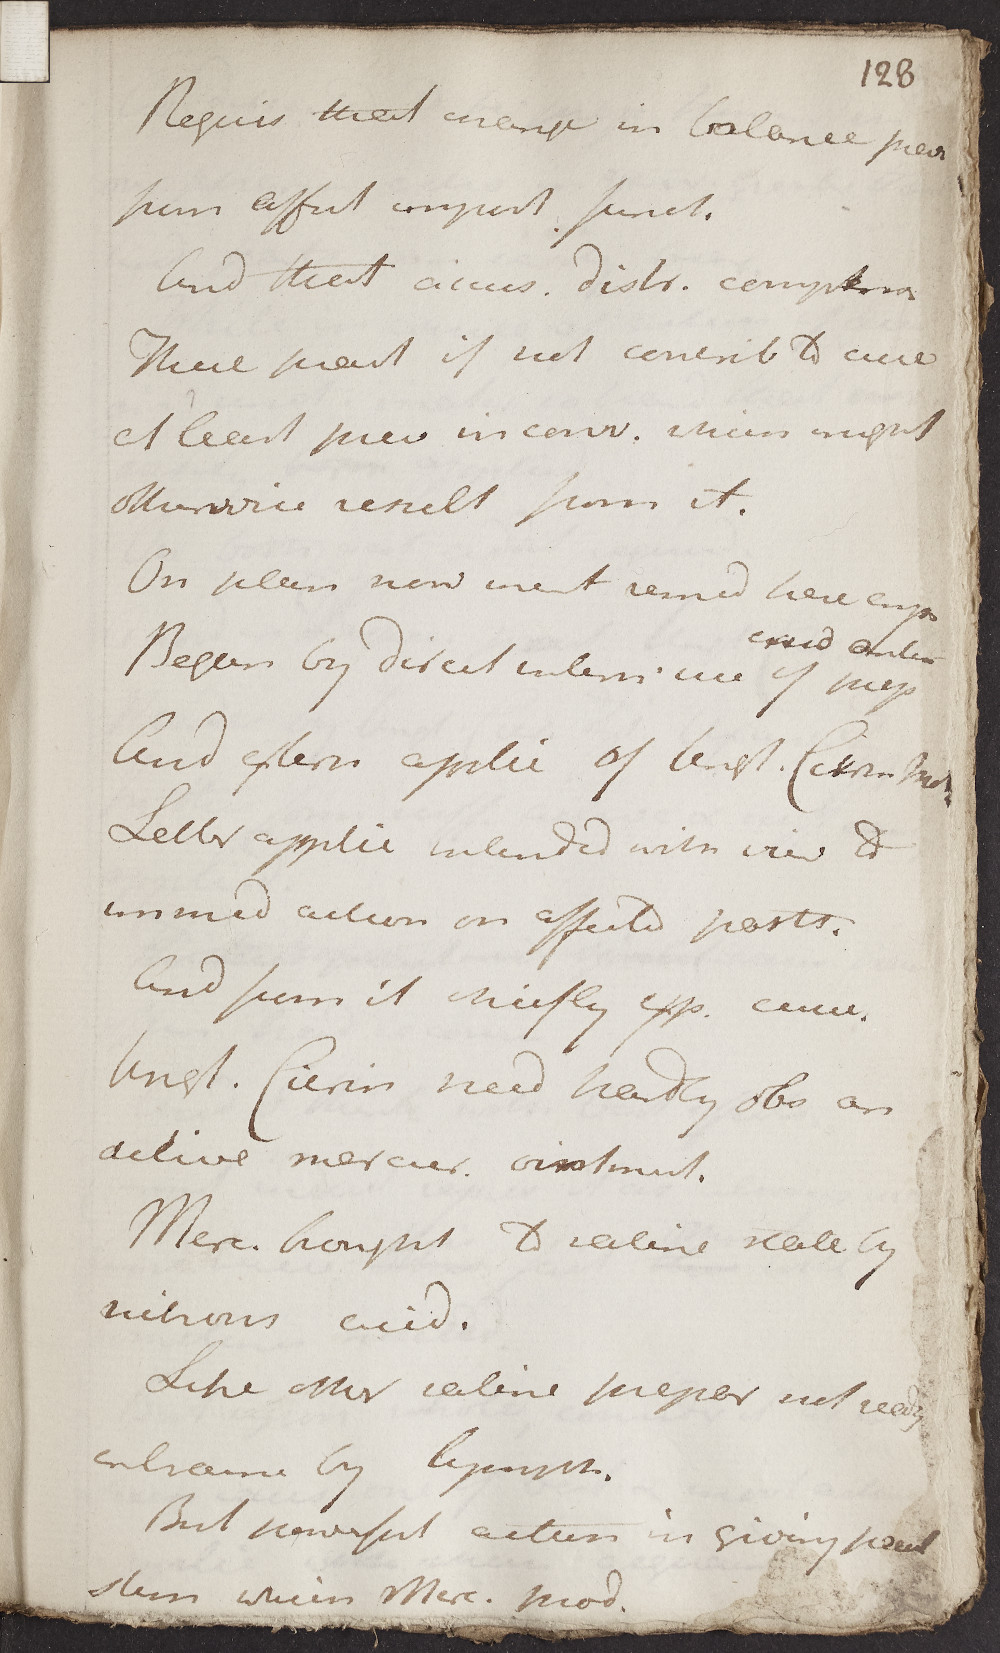 128
Requis that change in balance prev
from affect import. funct.
And that accus. distr. complain
These precaut if not contrib to cure
at least prev inconv. which might
otherwise result from it.
On plan now ment remed here emp
crud antim
Began by direct intern. use of prep
And extern applic of Ungt. Citrin
Latter applic intended with view to
immed action on affected parts.
And from it chiefly exp. cure.
Ungt. Citrin need hardly obs an
active mercur. ointment.
Merc. brought to saline state by
nitrous acid.
Like other saline prepar not ready
introduce by lymph.
But powerful action in giving
stim which Merc. prod.